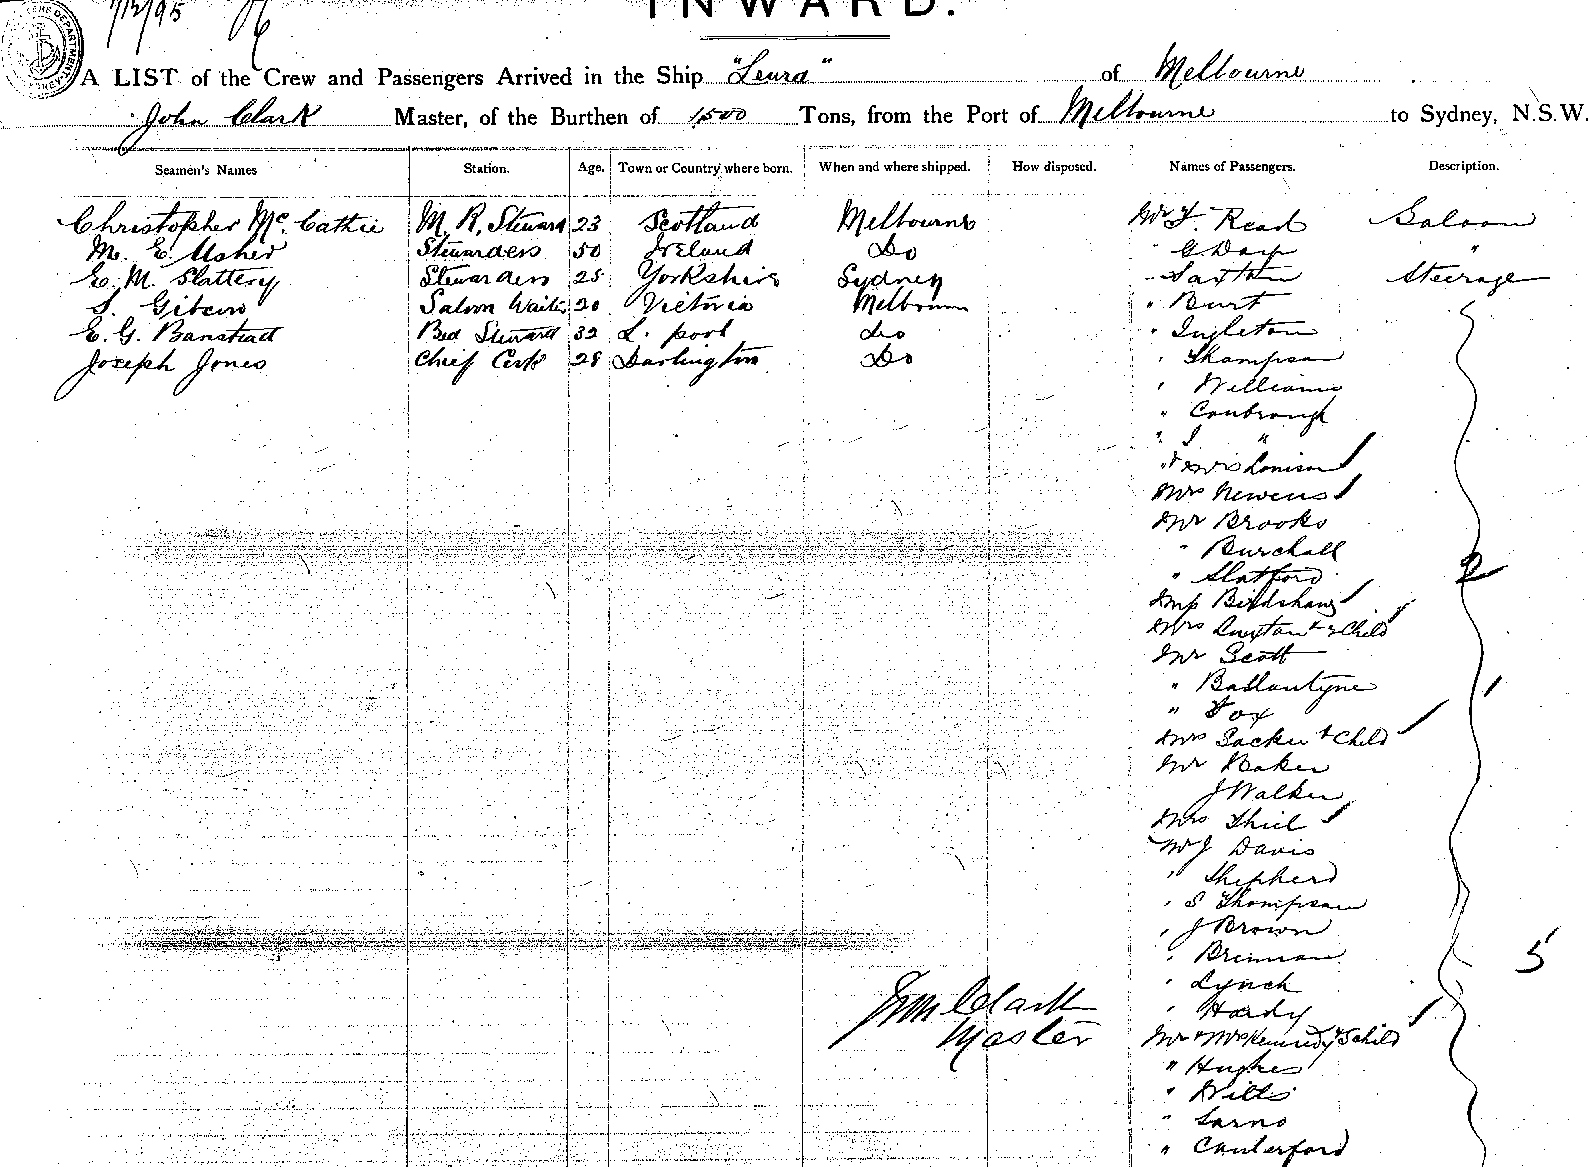 7/12/95
INWARD.
A LIST of the Crew and Passengers Arrived in the Ship "Leura" of Melbourne
John Clark Master, of the Burthen of 1,500 Tons, from the Port of Melbourne to Sydney, N.S.W.
Seamen's Names Station. Age. Town or Country where born. When and where shipped. How disposed. Names of Passengers. Description.
Christopher Mc. Cathie M. R. Steward 23 Scotland Melbourne Mr F. Read Saloon
M. E. Usher Stewardess 50 Ireland Do " G. Day "
E. M. Slattery Stewardess 25 Yorkshire Sydney " Saxton Steerage
S. Gibson Saloon Waiter 20 Victoria Melbourne " Burt
E. G. Banstead Bed Steward 32 L. pool do " Ingleton
Joseph Jones Chief Cook 28 Darlington Do " Thompson
" Williams
" Conbrough
" J "
Mrs Newens
Mr Brooks
" Burchall
" Slatford
Birdshaw
Mrs Luxton & 2 Child
Mr Scott
" Ballantyne
" Fox
Mrs Packer & Child
Mr Baker
J Walker
Mrs Thiel
Mr J Davis
" Shepherd
" S Thompson
" J Brown
" Brennan 5
" Lynch
" Hardy
Jno Clark
Master
Mr & Mrs Kennedy & 5 child
" Hughes
" Wills
" Sarno
" Canterford